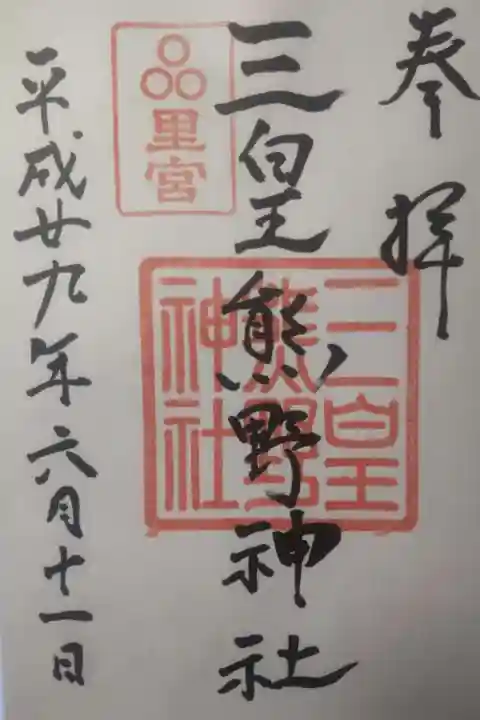 奉拝
三皇熊野神社
三皇熊野神社
里宮
平成廿九年六月十一日